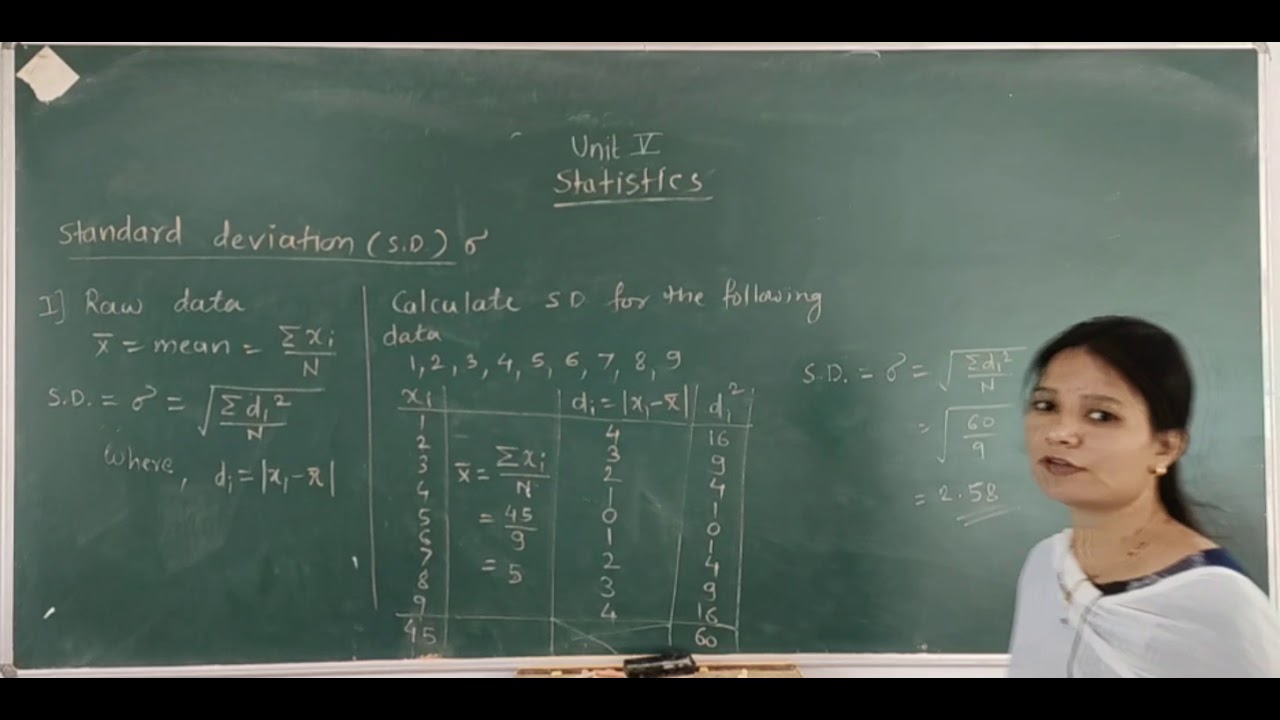 Unit V
Statistics
Standard deviation (S.D.) σ
I] Raw data
x̄ = mean = Σxᵢ/N
S.D. = σ = √(Σdᵢ²/N)
Where, dᵢ = |xᵢ - x̄|
Calculate SD for the following
data
1, 2, 3, 4, 5, 6, 7, 8, 9
xᵢ dᵢ = |xᵢ - x̄| dᵢ²
1 4 16
2 3 9
3 2 4
4 1 1
5 0 0
6 1 1
7 2 4
8 3 9
9 4 16
45 60
x̄ = Σxᵢ/N
= 45/9
= 5
S.D. = σ = √(Σdᵢ²/N)
= √(60/9)
= 2.58